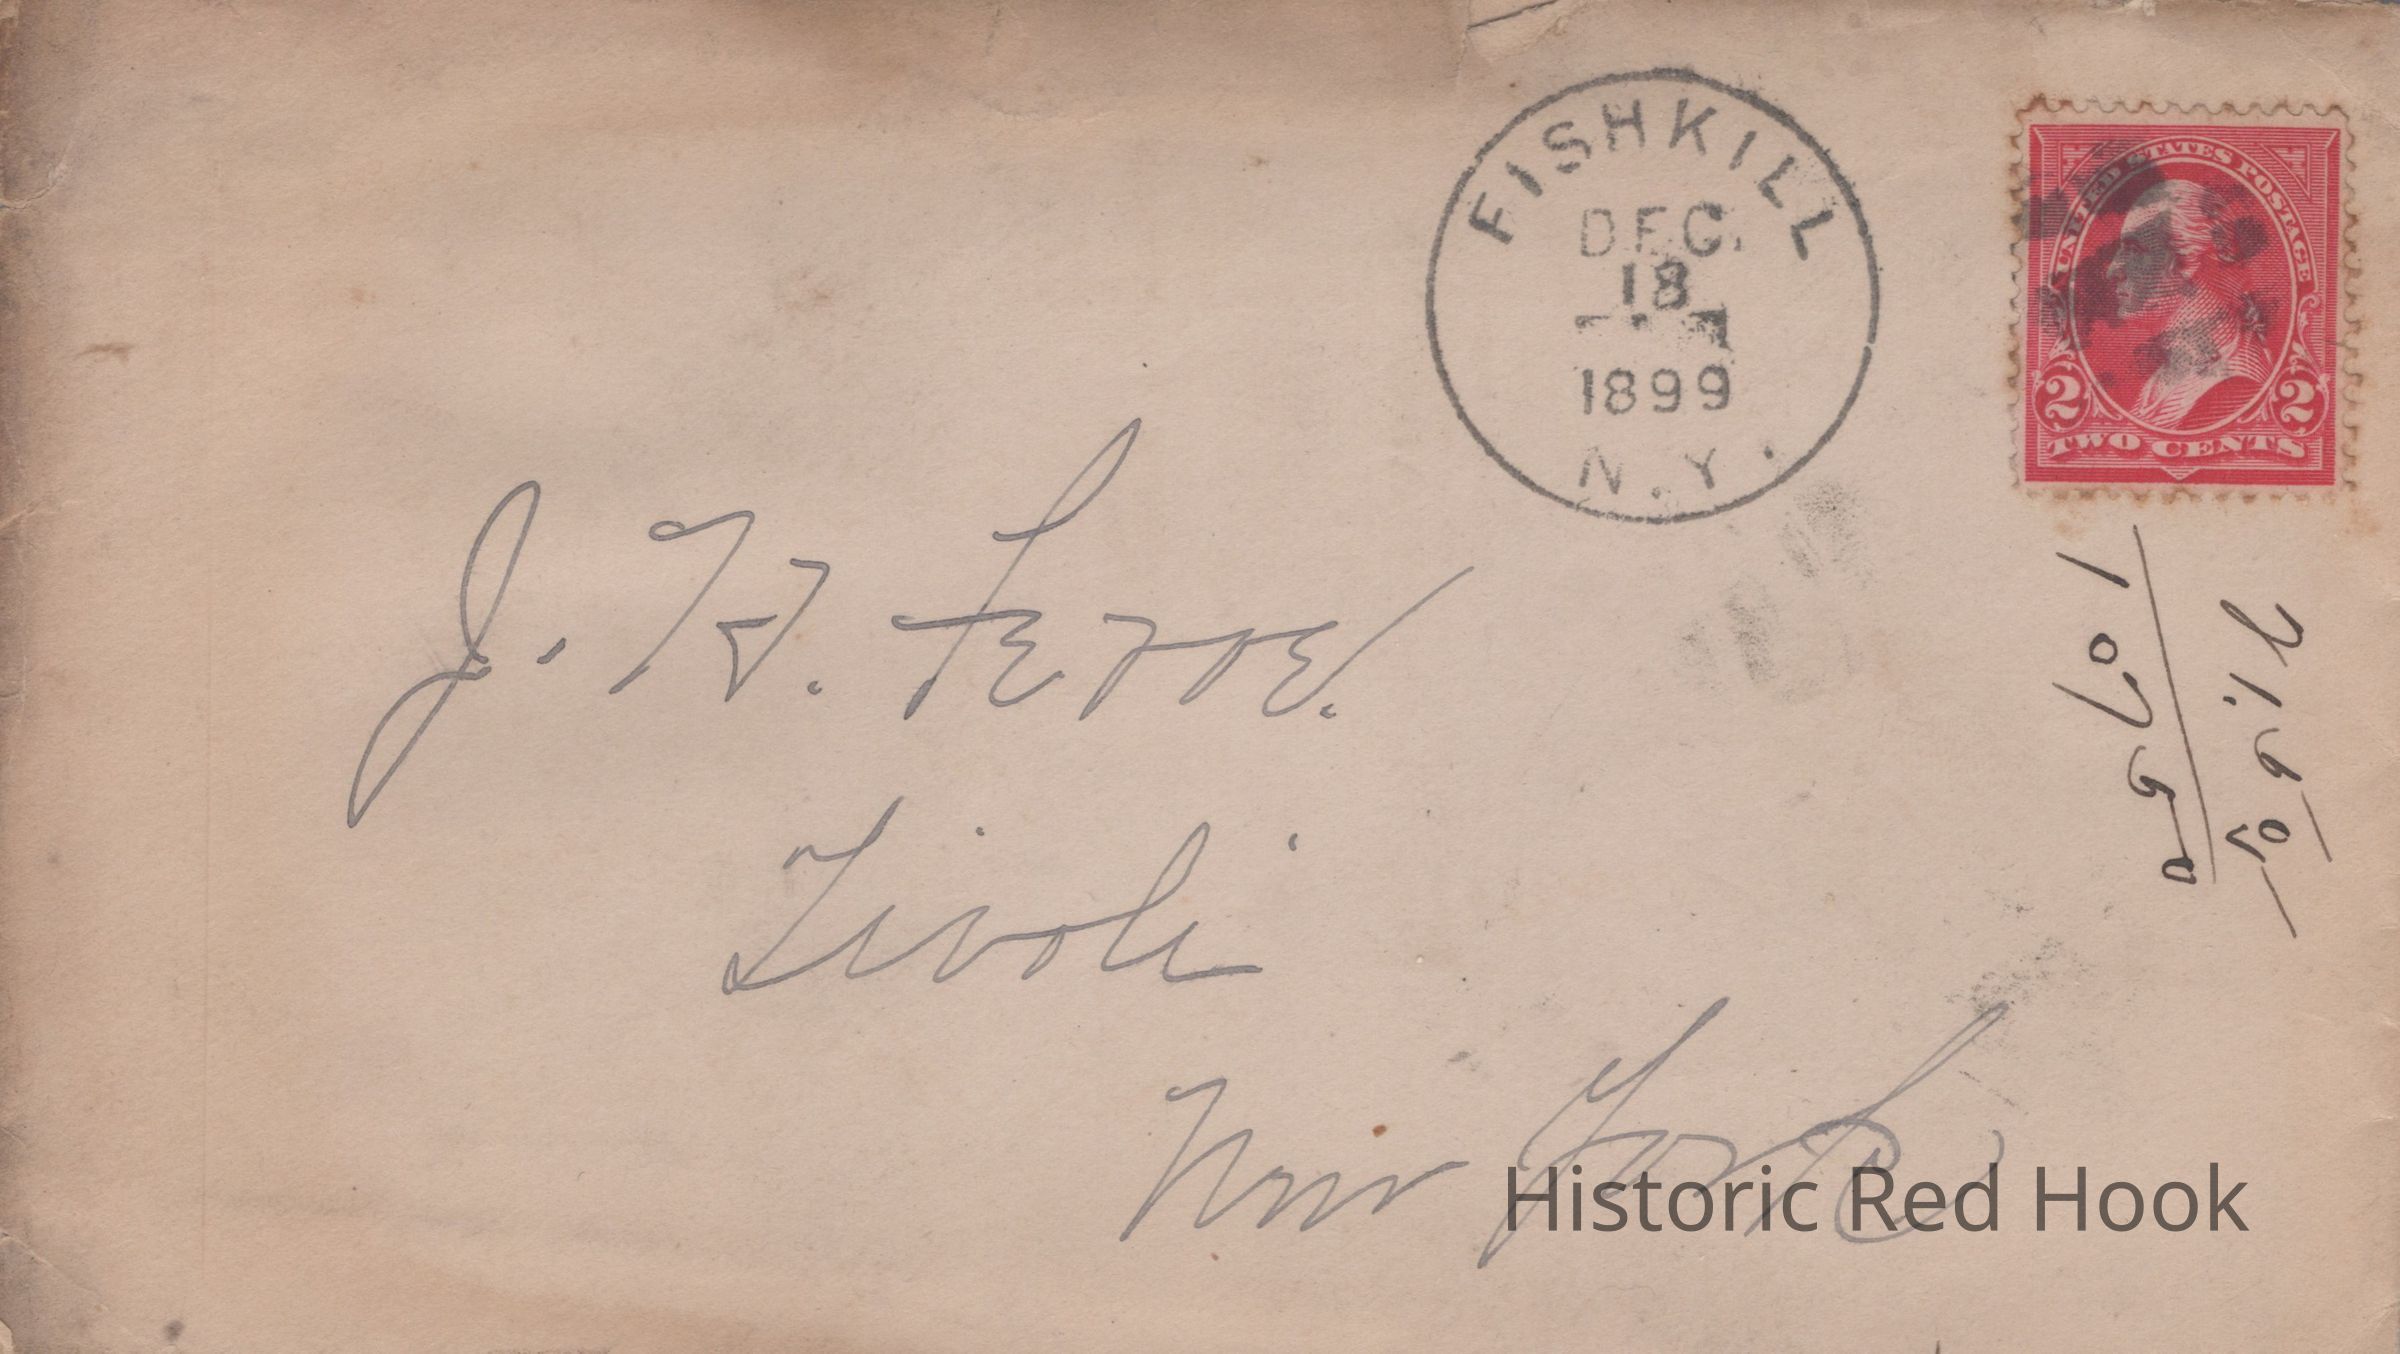 FISHKILL
DEC.
18
1899
N.Y.
UNITED STATES POSTAGE
2 2
TWO CENTS
J. H.
Tivoli
New York
Historic Red Hook